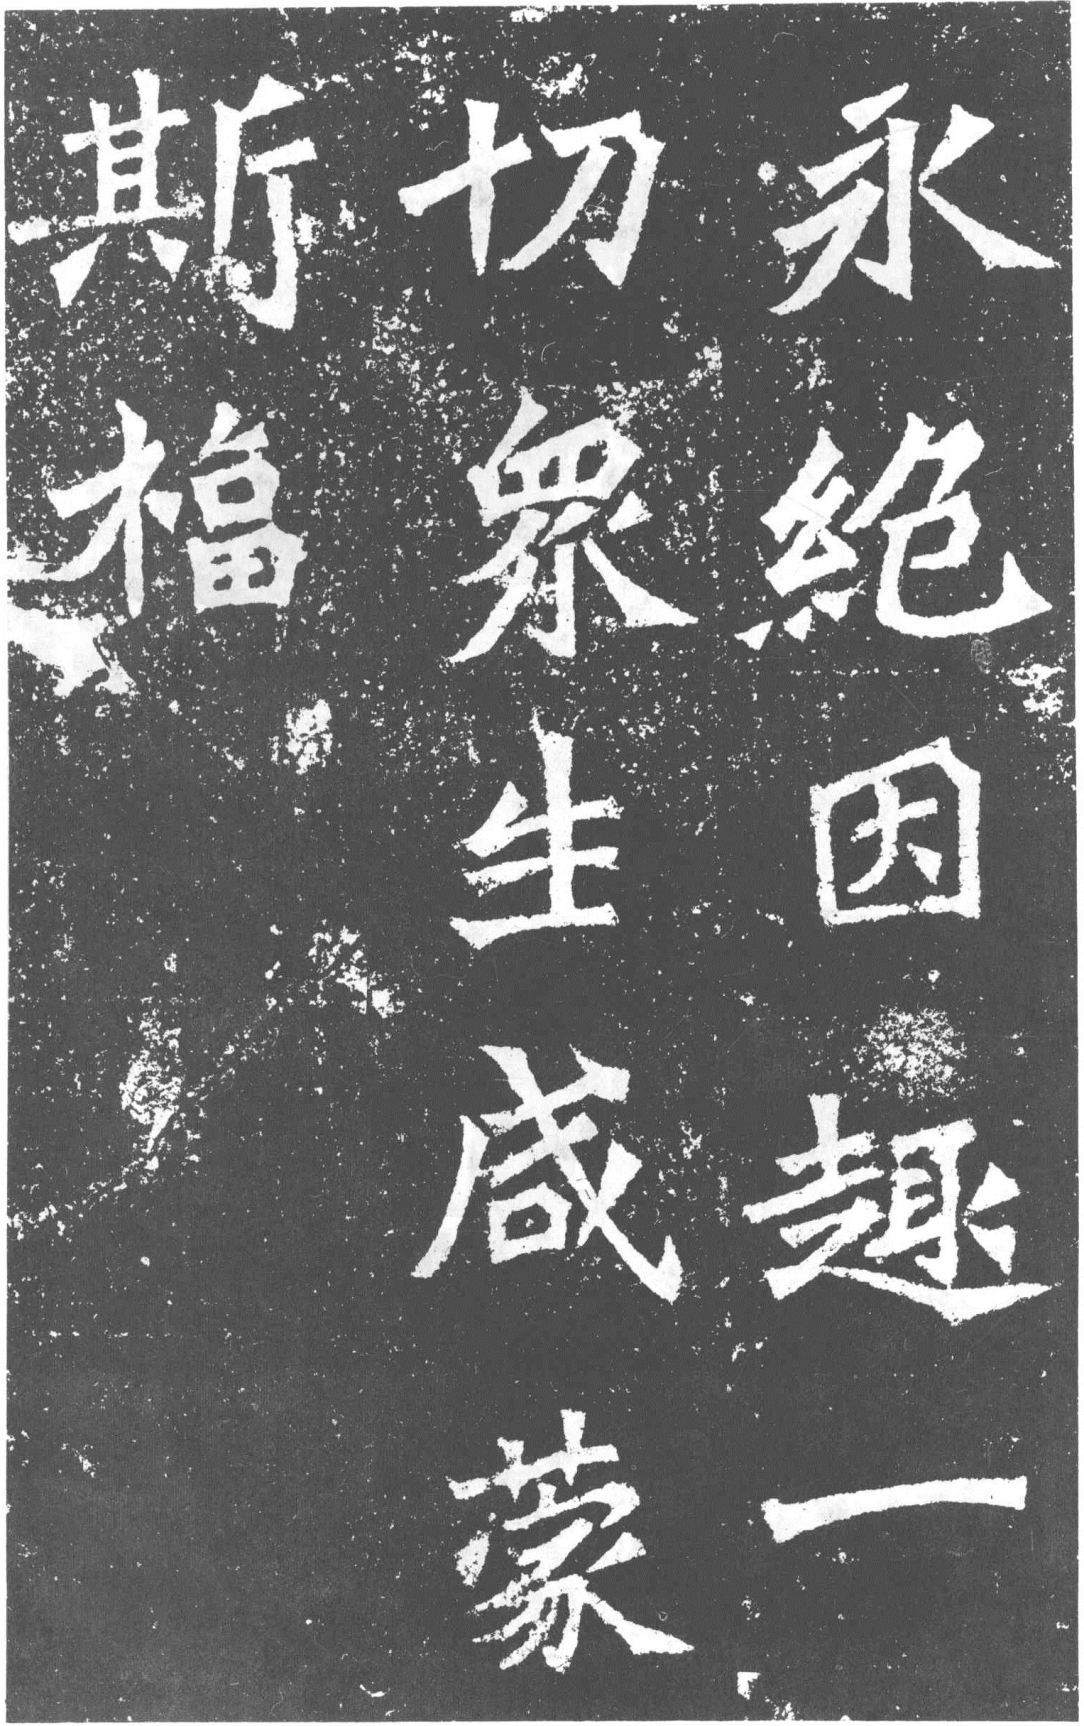 永絕因趣一
切眾生咸蒙
斯福